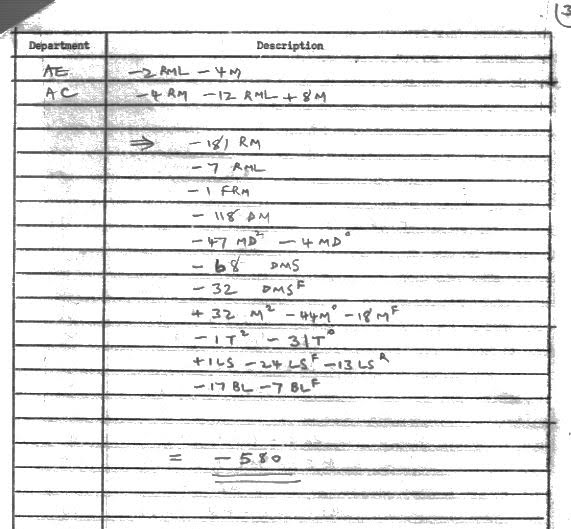 (3
Department Description
AE -2 RML - 4M
AC -4 RM -12 RML + 8M
⇒ - 181 RM
- 7 RML
- 1 FRM
- 118 DM
- 47 MD² - 4 MD⁰
- 68 DMS
- 32 DMSᶠ
+ 32 M² - 44M⁰ - 18Mᶠ
- 1T² - 31T⁰
+1LS - 24 LSᶠ - 13 LSᴿ
- 17 BL - 7 BLᶠ
= - 580